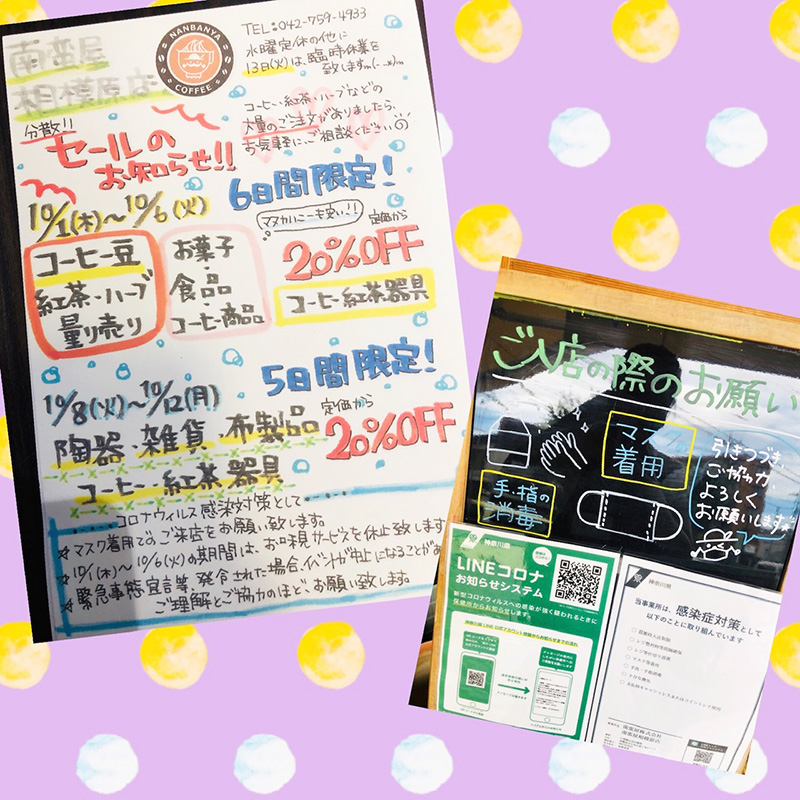 南蛮屋
相模原店
NANBANYA
COFFEE
TEL:042-759-4933
水曜定休の他に
13日(火)は、臨時休業を
致しますm(_ _)m
コーヒー・紅茶・ハーブなどの
大量のご注文がありましたら、
お気軽に、ご相談ください
分散!!
セールの
お知らせ!!
6日間限定!
10/1(木)〜10/6(火)
マヌカハニーも安い!!
定価から
20%OFF
コーヒー豆
紅茶・ハーブ
量り売り
お菓子
・
食品
・
コーヒー商品
コーヒー紅茶器具
5日間限定!
10/8(火)〜10/12(月)
定価から
20%OFF
陶器・雑貨・布製品
コーヒー・紅茶器具
コロナウィルス感染対策として
☆マスク着用でのご来店をお願い致します。
☆10/1(木)〜10/6(火)の期間は、お味見サービスを休止致します
☆緊急事態宣言等、発令された場合、イベントが中止になることがあ
ご理解とご協力のほど、お願い致します。
ご入店の際のお願い
マスク
着用
手・指の
消毒
引きつづき
ご協力
よろしく
お願いします
神奈川県
LINEコロナ
お知らせシステム
新型コロナウィルスへの感染が強く疑われるときに
保健所からお知らせします。
神奈川県
当事業所は、感染症対策として
以下のことに取り組んでいます
南蛮屋株式会社
南蛮屋相模原店